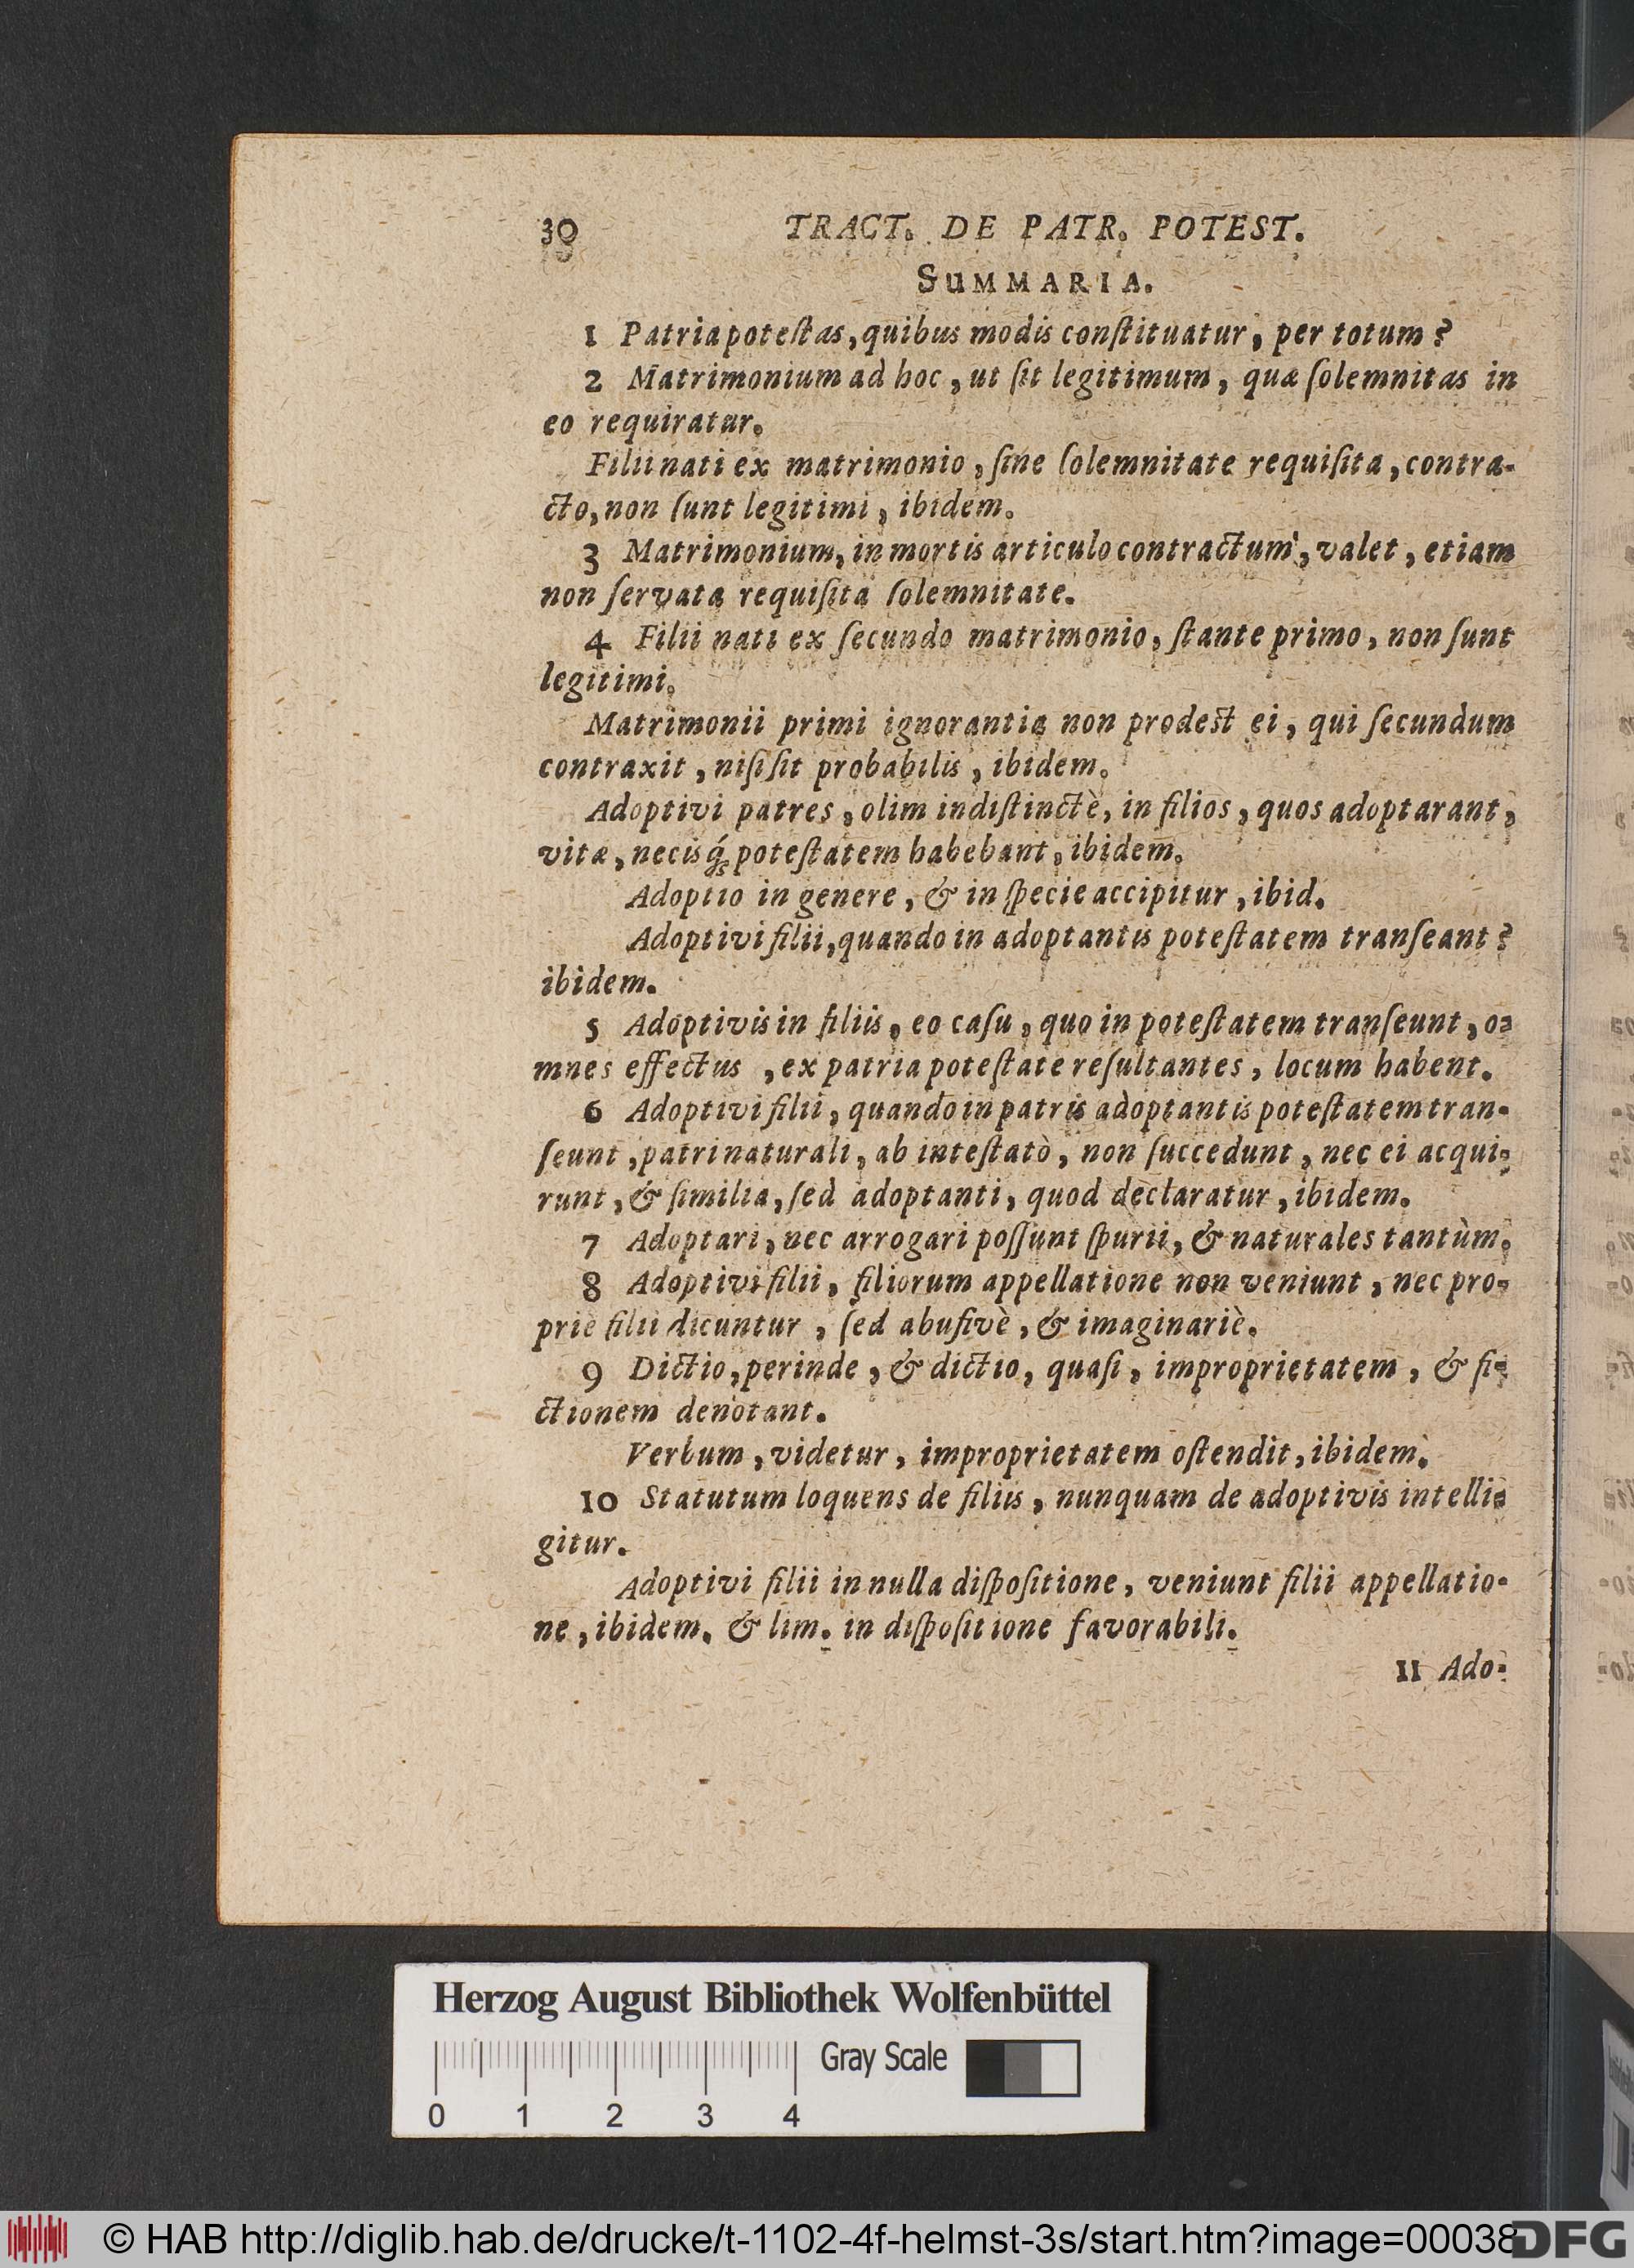 30 TRACT. DE PATR. POTEST.
SUMMARIA.
1 Patria potestas, quibus modis constituatur, per totum?
2 Matrimonium ad hoc, ut sit legitimum, quæ solemnitas in
eo requiratur.
Filii nati ex matrimonio, sine solemnitate requisita, contra-
cto, non sunt legitimi, ibidem.
3 Matrimonium, in mortis articulo contractum, valet, etiam
non servata requisita solemnitate.
4 Filii nati ex secundo matrimonio, stante primo, non sunt
legitimi.
Matrimonii primi ignorantia non prodest ei, qui secundum
contraxit, nisi sit probabilis, ibidem.
Adoptivi patres, olim indistinctè, in filios, quos adoptarant,
vitæ, necisq́; potestatem habebant, ibidem.
Adoptio in genere, & in specie accipitur, ibid.
Adoptivi filii, quando in adoptantis potestatem transeant?
ibidem.
5 Adoptivis in filiis, eo casu, quo in potestatem transeunt, o-
mnes effectus, ex patria potestate resultantes, locum habent.
6 Adoptivi filii, quando in patris adoptantis potestatem tran-
seunt, patri naturali, ab intestatò, non succedunt, nec ei acqui-
runt, & similia, sed adoptanti, quod declaratur, ibidem.
7 Adoptari, nec arrogari possunt spurii, & naturales tantùm.
8 Adoptivi filii, filiorum appellatione non veniunt, nec pro-
priè filii dicuntur, sed abusivè, & imaginariè.
9 Dictio, perinde, & dictio, quasi, improprietatem, & fi-
ctionem denotant.
Verbum, videtur, improprietatem ostendit, ibidem.
10 Statutum loquens de filiis, nunquam de adoptivis intelli-
gitur.
Adoptivi filii in nulla dispositione, veniunt filii appellatio-
ne, ibidem. & lim. in dispositione favorabili.
11 Ado-
Herzog August Bibliothek Wolfenbüttel
Gray Scale
0 1 2 3 4
© HAB http://diglib.hab.de/drucke/t-1102-4f-helmst-3s/start.htm?image=00038
DFG